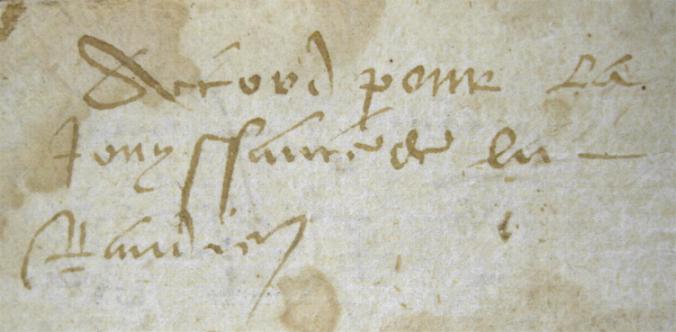 Accord pour la
Jouyssance de la